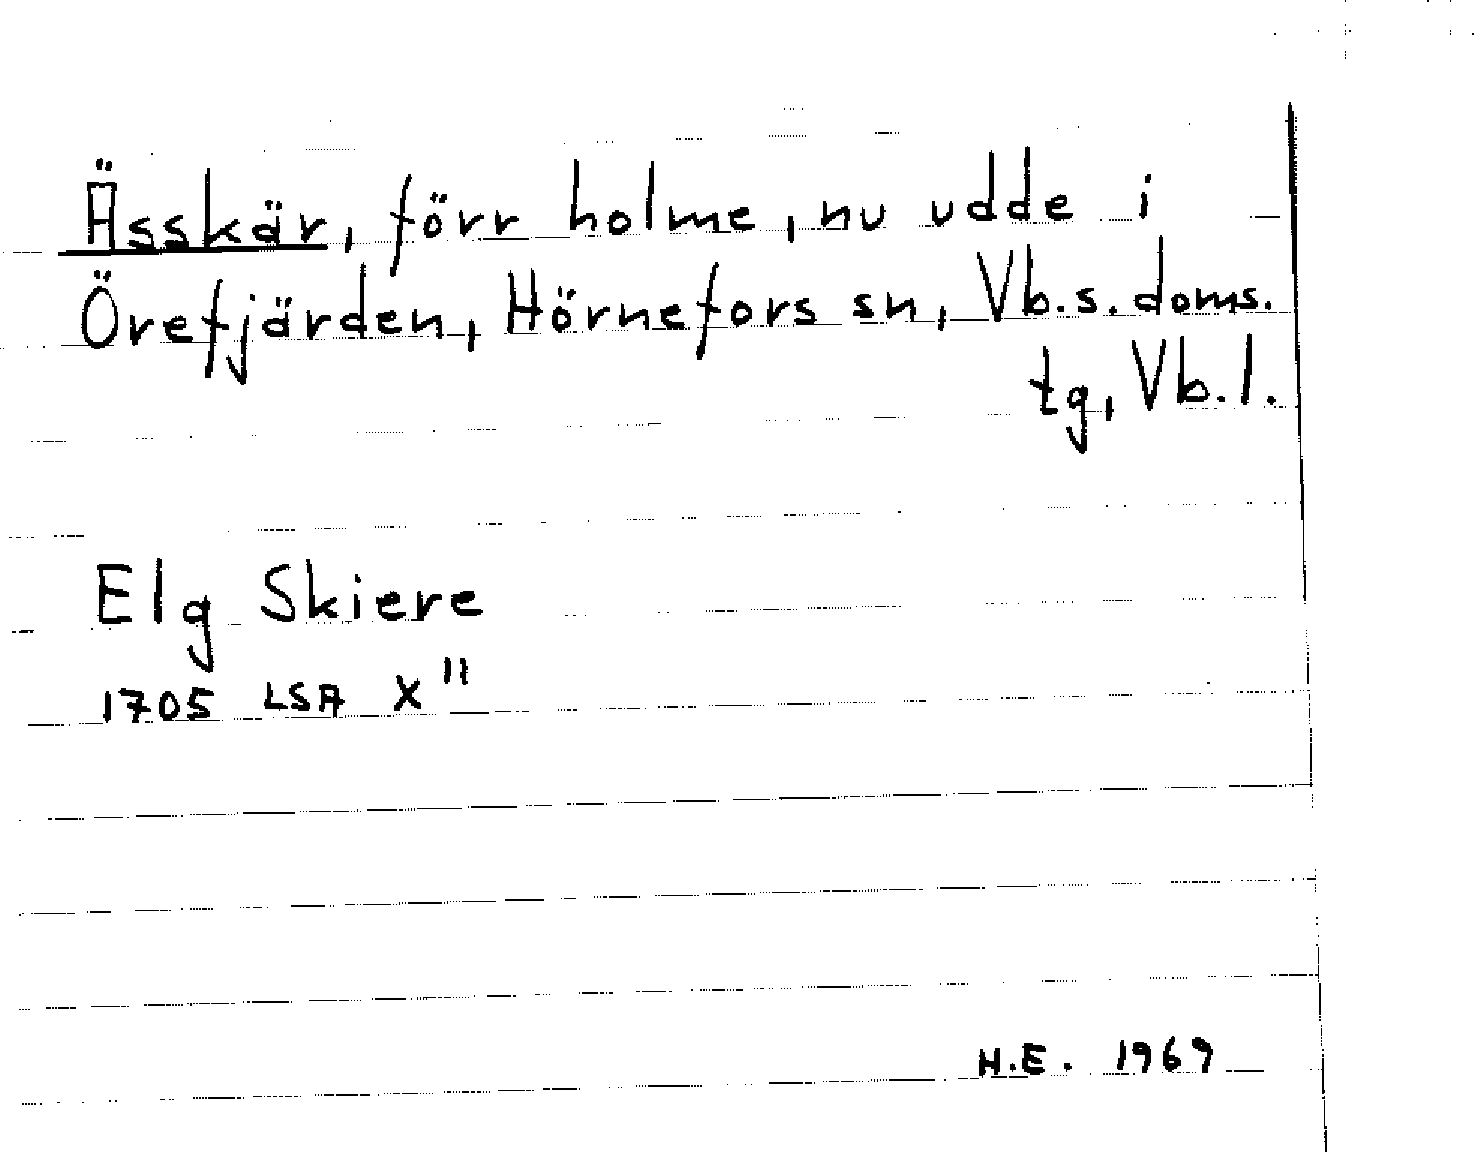 Ässkär, förr holme, nu udde i
Örefjärden, Hörnefors sn, Vb.s.doms.
tg, Vb.l.
Elg Skiere
1705 LSA X"
H.E. 1969